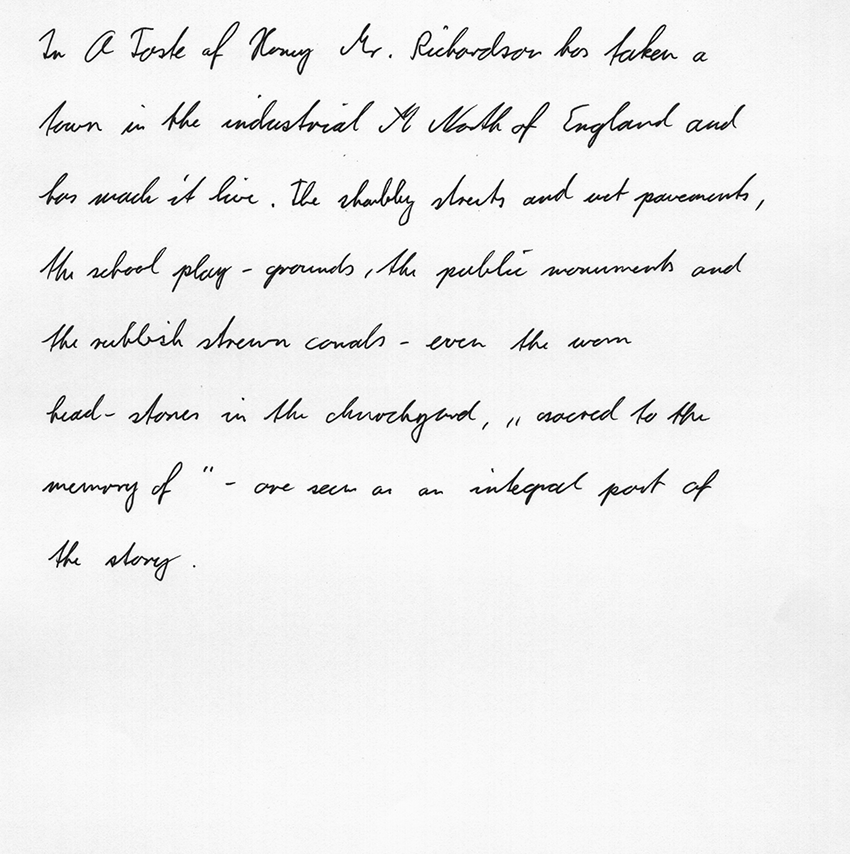 In A Taste of Honey Mr. Richardson has taken a
town in the industrial North of England and
has made it live. The shabby streets and wet pavements,
the school play - grounds, the public monuments and
the rubbish strewn canals - even the worn
head - stones in the churchyard, „ sacred to the
memory of " - are seen as an integral part of
the story.